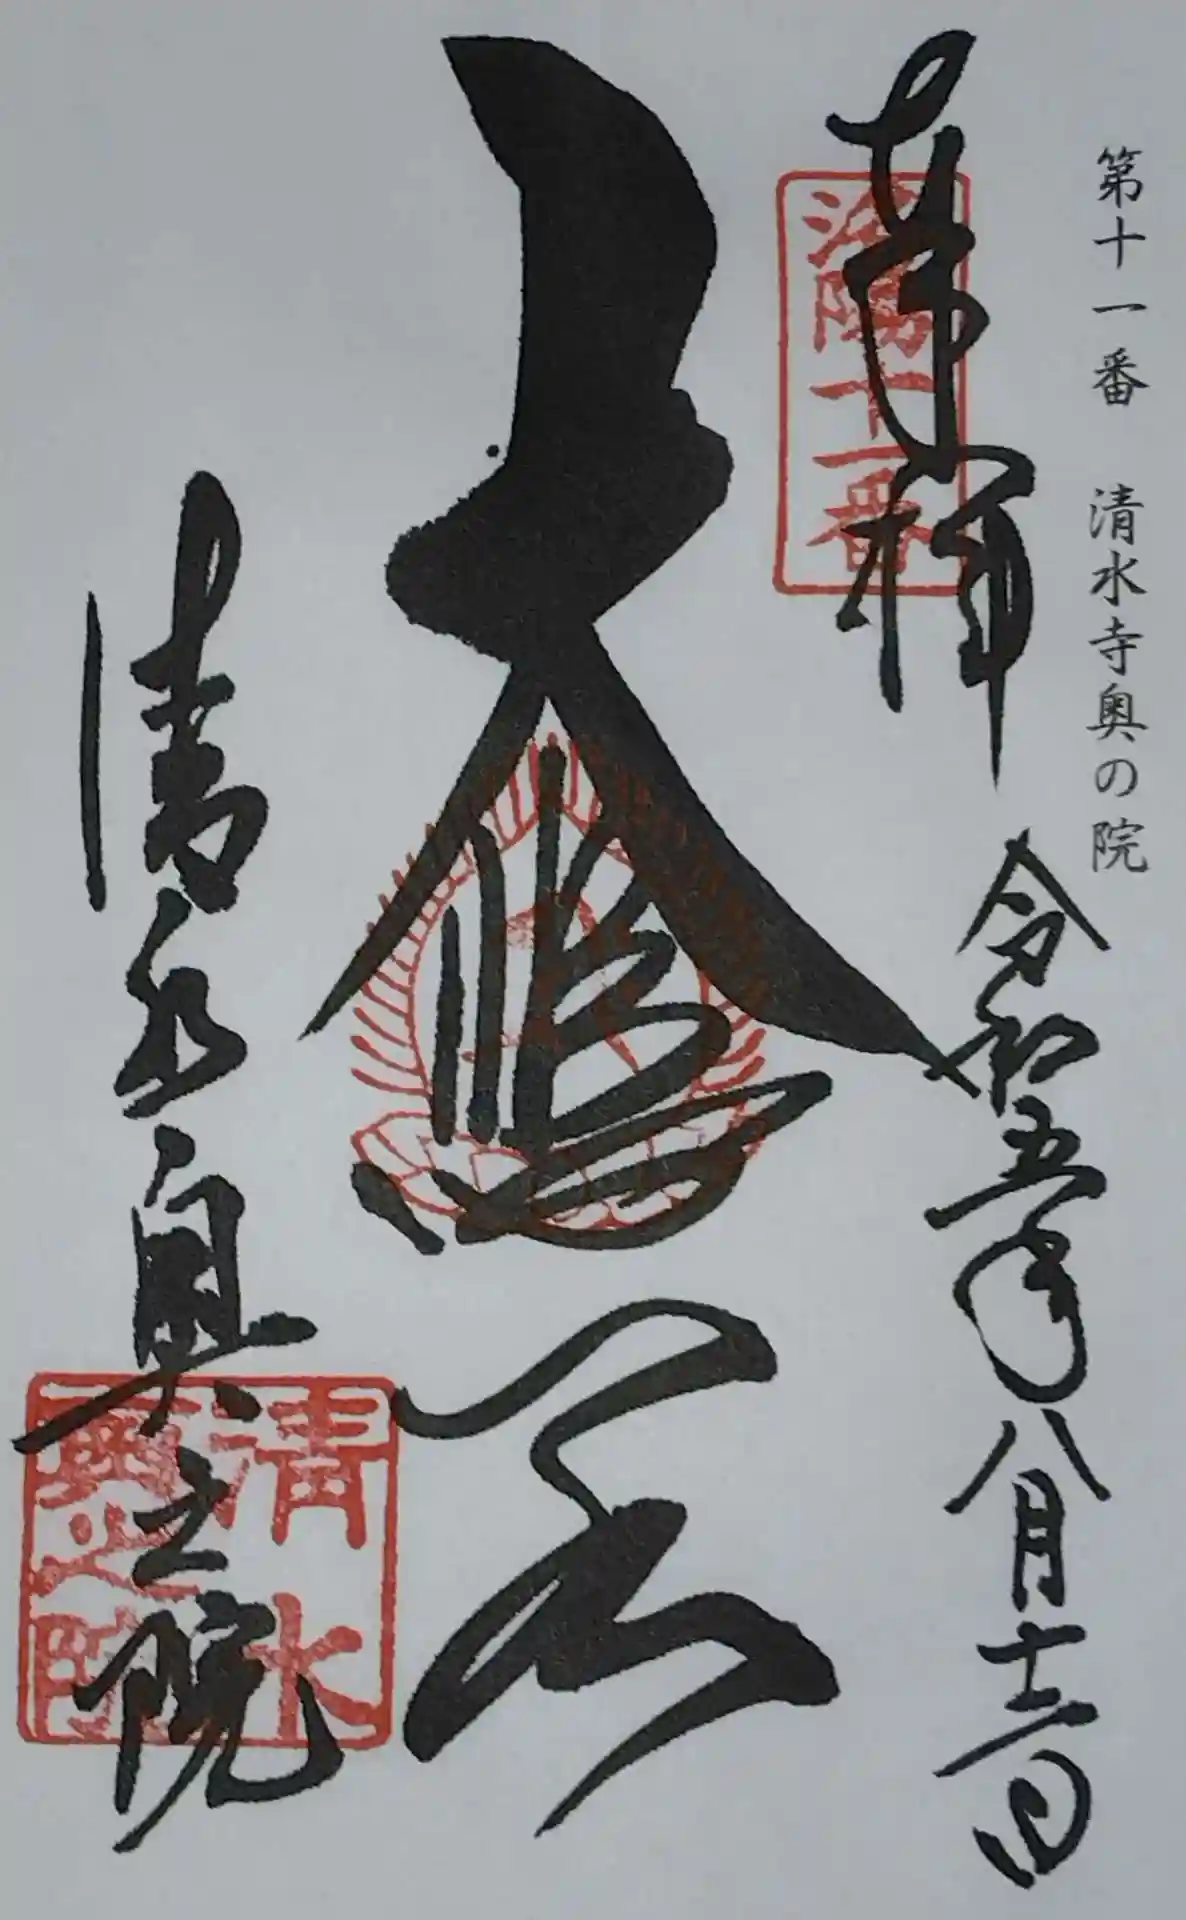 第十一番 清水寺奥の院
奉拝
洛陽十一番
令和五年八月十二日
大悲閣
清水奥之院
清水
奥之院